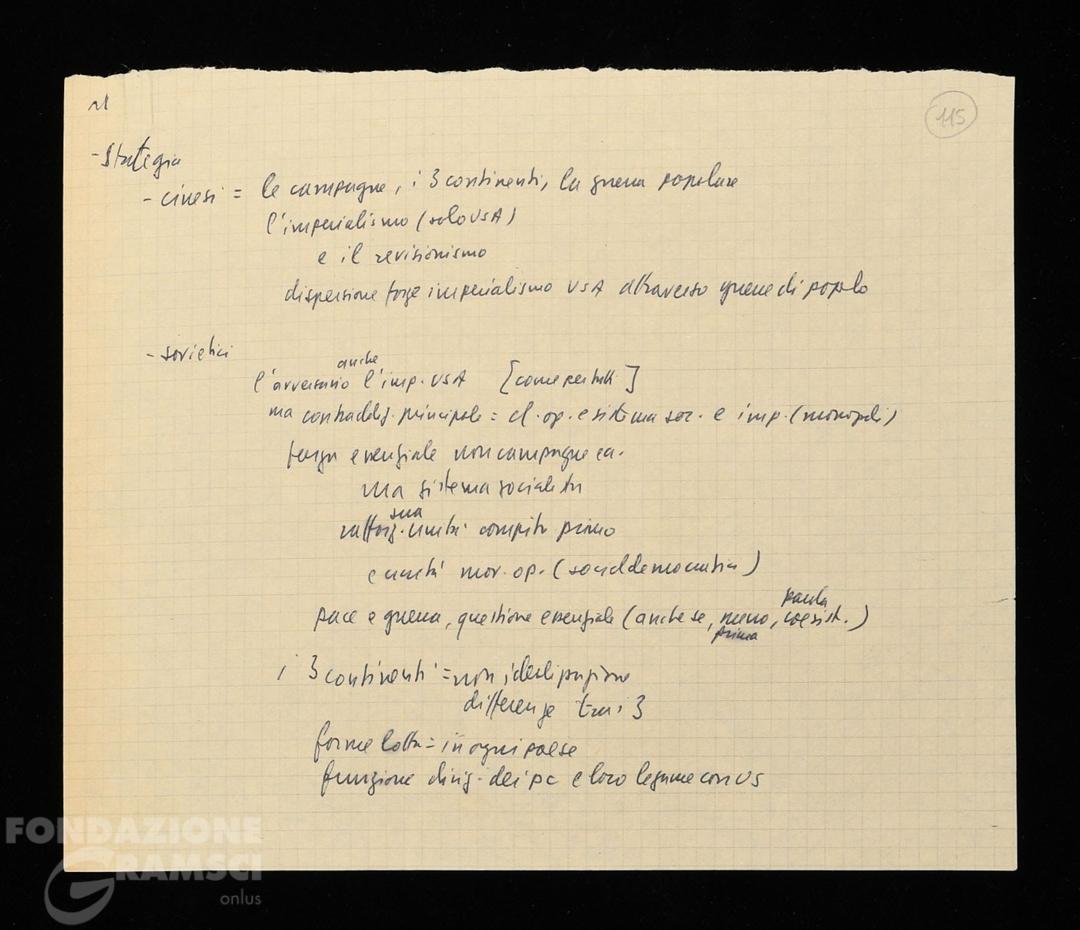 115
- Strategia
- cinesi = le campagne, i 3 continenti, la guerra popolare
l'imperialismo (solo USA)
e il revisionismo
dispersione forze imperialismo USA attraverso guerre di popolo
- sovietici
anche
l'avversario l'imp. USA [come per tutti]
ma contraddiz. principale = cl. op. e sistema soc. e imp. (monopoli)
forza essenziale non campagne ecc.
ma sistema socialista
sua
rafforz. unità compito primo
e unità mov. op. (socialdemocratici)
parola
pace e guerra, questione essenziale (anche se, meno, coesist.)
prima
i 3 continenti = non idealizzazione
differenze tra i 3
forme lotta = in ogni paese
funzione dirig. dei pc e loro legame con US
FONDAZIONE
GRAMSCI
onlus